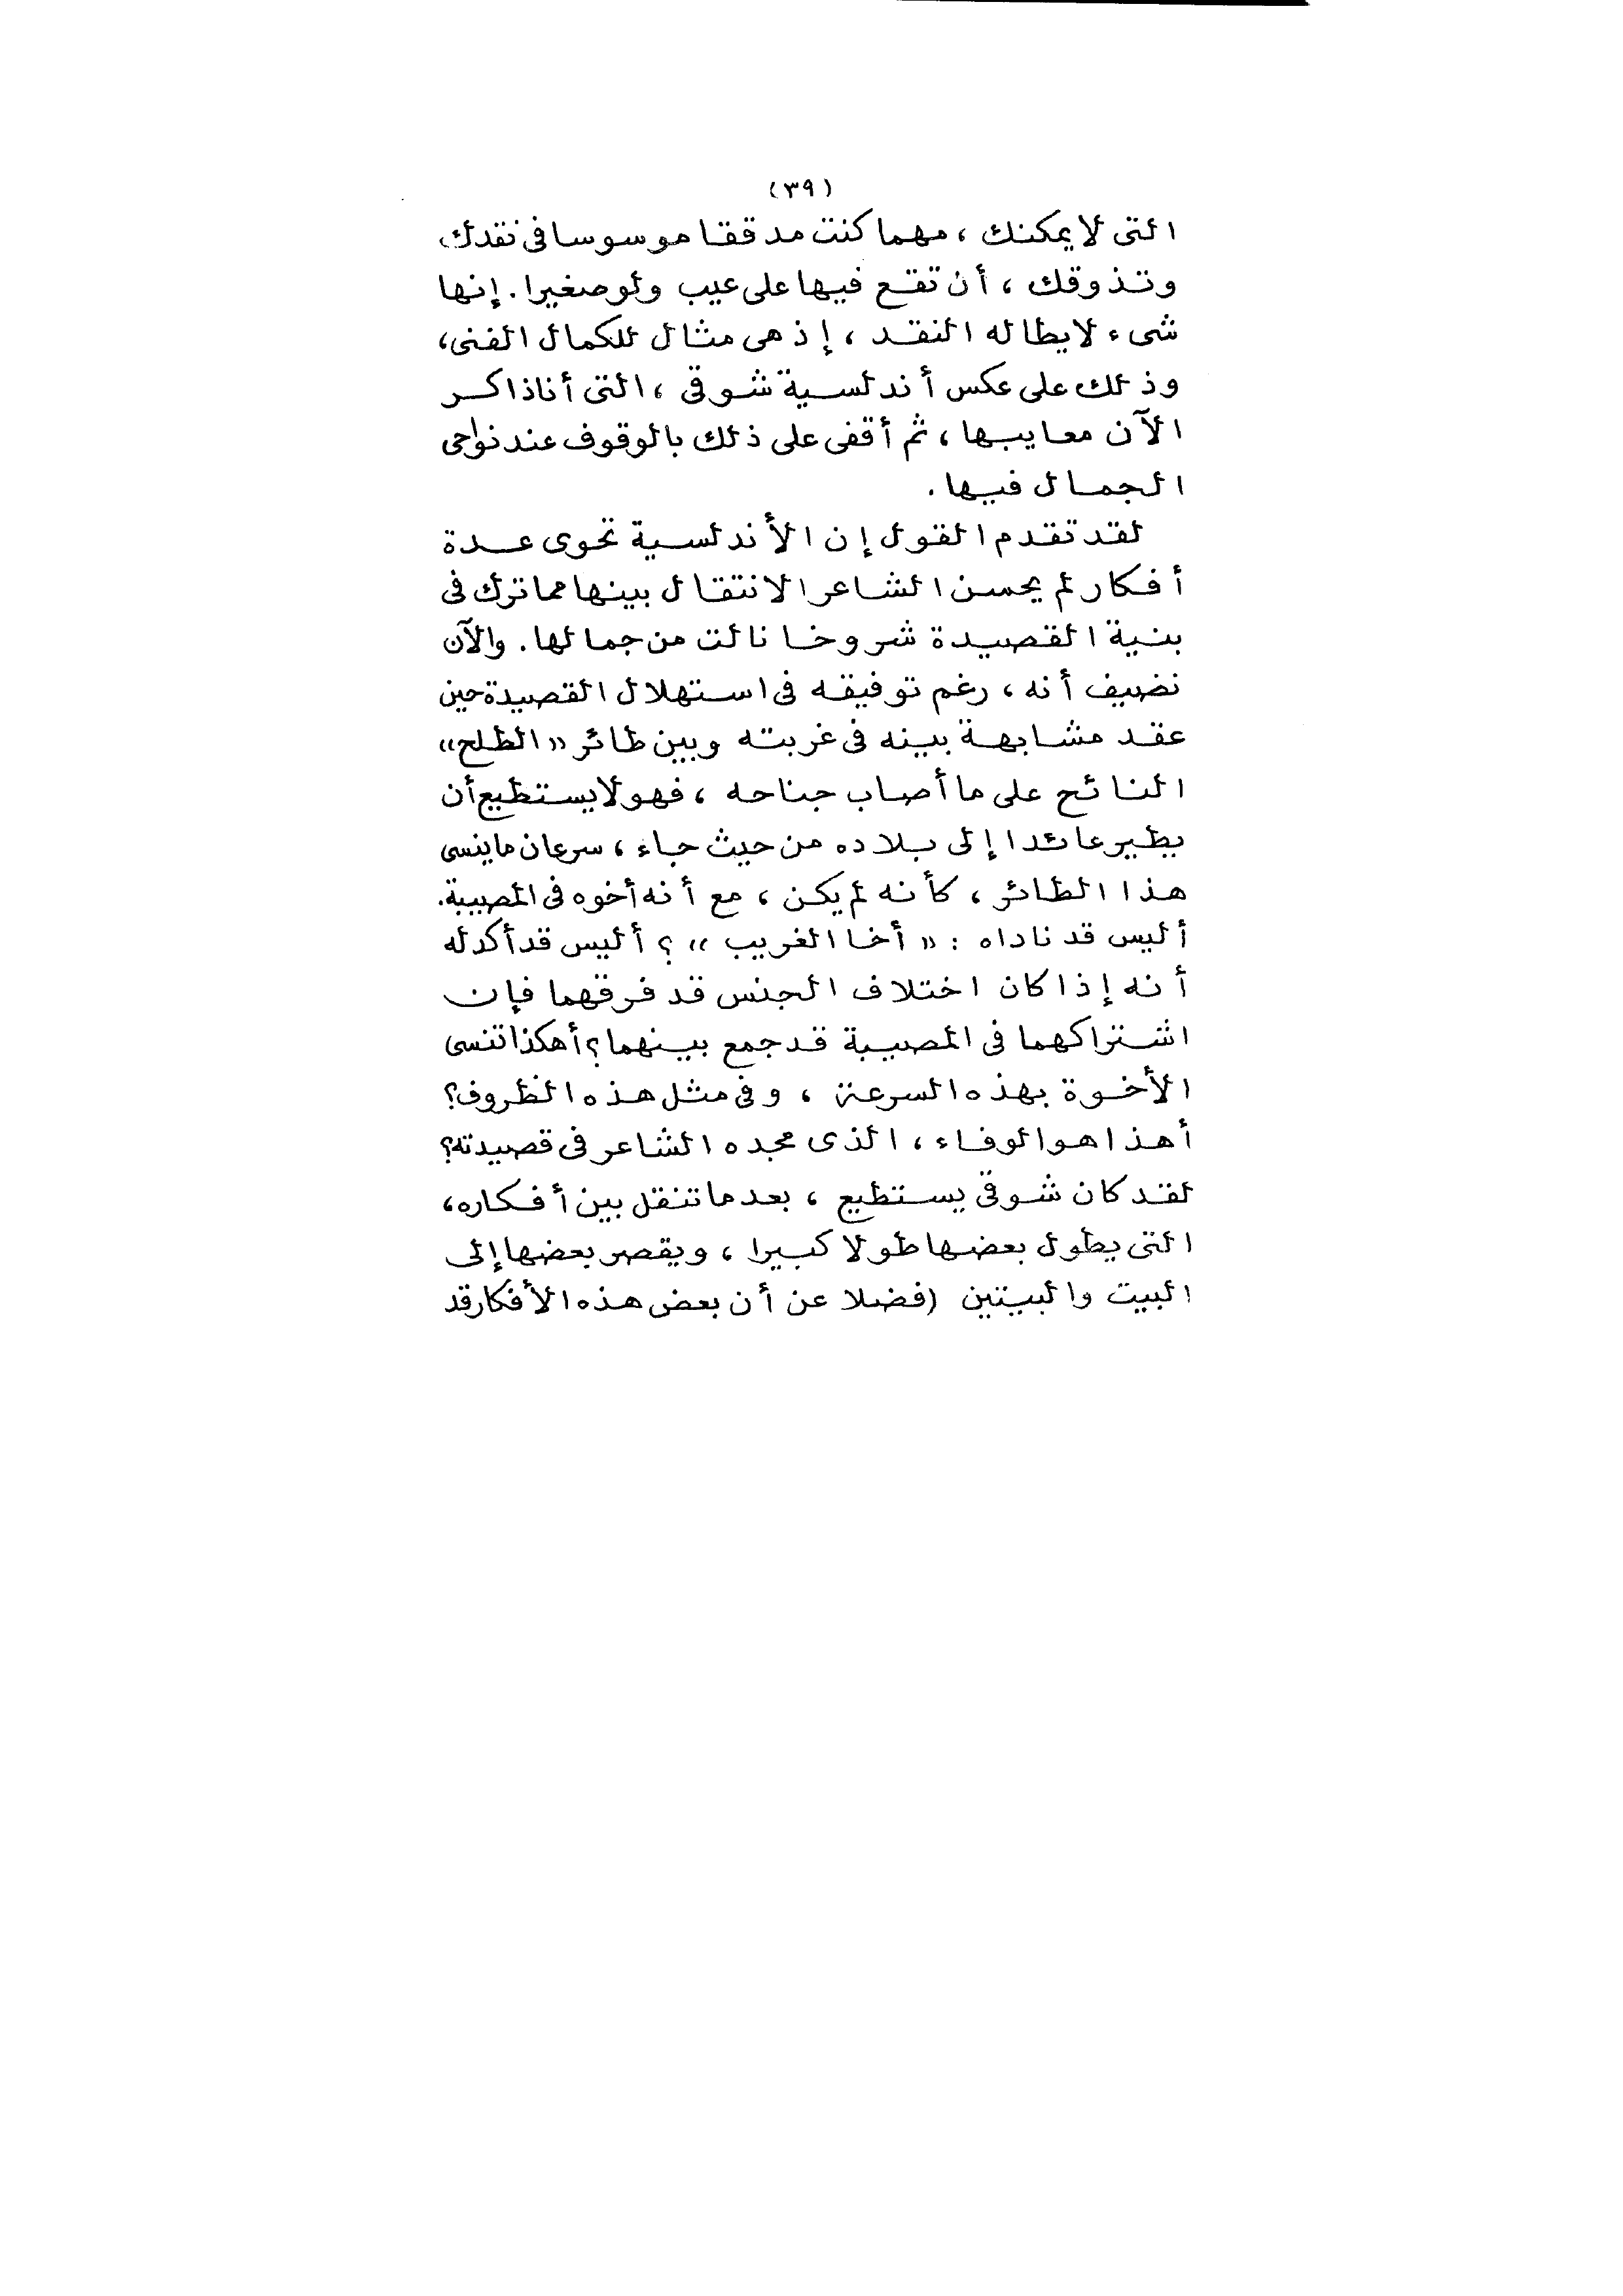 (٣٩)
التى لا يمكنك ، مهما كنت مدققا موسوسا فى نقدك
وتذوقك ، أن تقع فيها على عيب ولو صغيرا . إنها
شىء لا يطاله النقد ، إذ هى مثال للكمال الفنى ،
وذلك على عكس أندلسية شوقى ، التى أنا ذاكر
الآن معايبها ، ثم أقفى على ذلك بالوقوف عند نواحى
الجمال فيها .
لقد تقدم القول إن الأندلسية تحوى عدة
أفكار لم يحسن الشاعر الانتقال بينها مما ترك فى
بنية القصيدة شروخا نالت من جمالها . والآن
نضيف أنه ، رغم توفيقه فى استهلال القصيدة حين
عقد مشابهة بينه فى غربته وبين طائر « الطلح »
النائح على ما أصاب جناحه ، فهو لا يستطيع أن
يطير عائدا إلى بلاده من حيث جاء ، سرعان ما ينسى
هذا الطائر ، كأنه لم يكن ، مع أنه أخوه فى المصيبة .
أليس قد ناداه : « أخا الغريب » ؟ أليس قد أكد له
أنه إذا كان اختلاف الجنس قد فرقهما فإن
اشتراكهما فى المصيبة قد جمع بينهما ؟ أهكذا تنسى
الأخوة بهذه السرعة ، وفى مثل هذه الظروف ؟
أهذا هو الوفاء ، الذى مجده الشاعر فى قصيدته ؟
لقد كان شوقى يستطيع ، بعدما تنقل بين أفكاره ،
التى يطول بعضها طولا كبيرا ، ويقصر بعضها إلى
البيت والبيتين (فضلا عن أن بعض هذه الأفكار قد